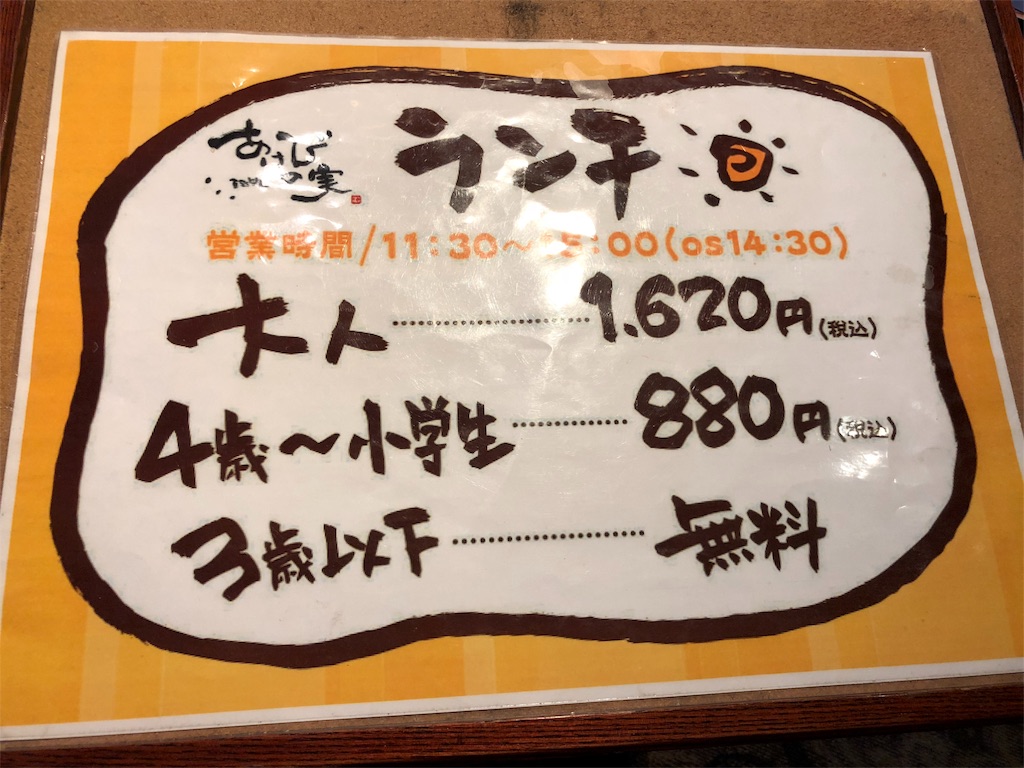 あけび の実
ランチ
営業時間/11:30〜15:00(os14:30)
大人 1.620円(税込)
4歳〜小学生 880円(税込)
3歳以下 無料